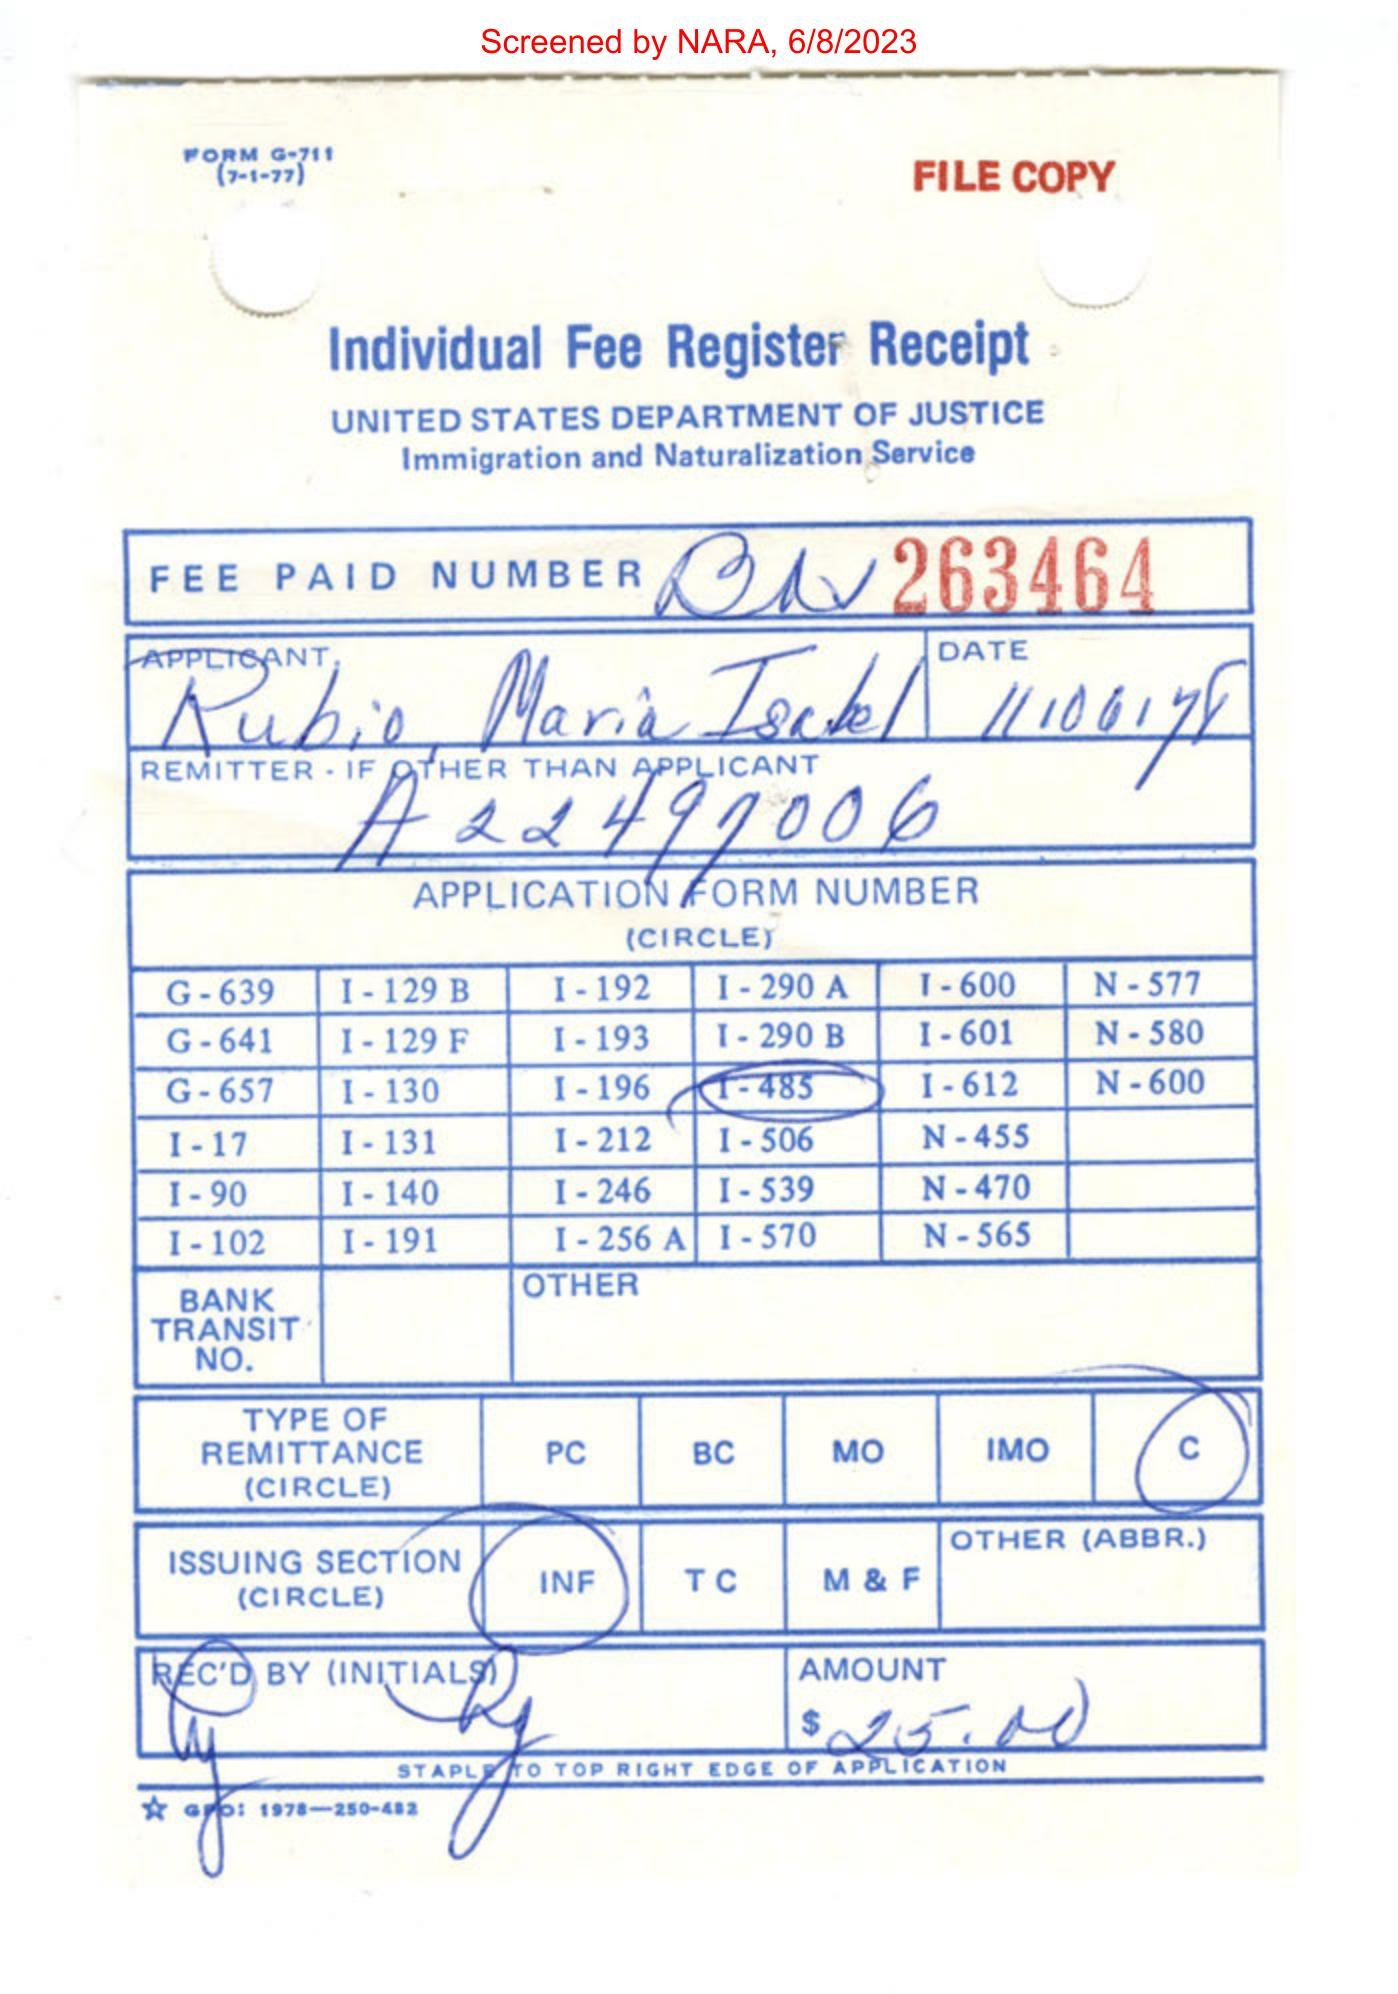 Screened by NARA, 6/8/2023
FORM G-711
(7-1-77)
FILE COPY
Individual Fee Register Receipt
UNITED STATES DEPARTMENT OF JUSTICE
Immigration and Naturalization Service
FEE PAID NUMBER 263464
APPLICANT DATE
Rubio, Maria Isabel 11/06/78
REMITTER - IF OTHER THAN APPLICANT
A22497006
APPLICATION FORM NUMBER
(CIRCLE)
G - 639 I - 129 B I - 192 I - 290 A I - 600 N - 577
G - 641 I - 129 F I - 193 I - 290 B I - 601 N - 580
G - 657 I - 130 I - 196 I - 485 I - 612 N - 600
I - 17 I - 131 I - 212 I - 506 N - 455
I - 90 I - 140 I - 246 I - 539 N - 470
I - 102 I - 191 I - 256 A I - 570 N - 565
BANK
TRANSIT
NO.
OTHER
TYPE OF
REMITTANCE
(CIRCLE)
PC BC MO IMO C
ISSUING SECTION
(CIRCLE)
INF T C M & F
OTHER (ABBR.)
REC'D BY (INITIALS) AMOUNT
$ 25.00
STAPLE TO TOP RIGHT EDGE OF APPLICATION
☆ GPO: 1978—250-482